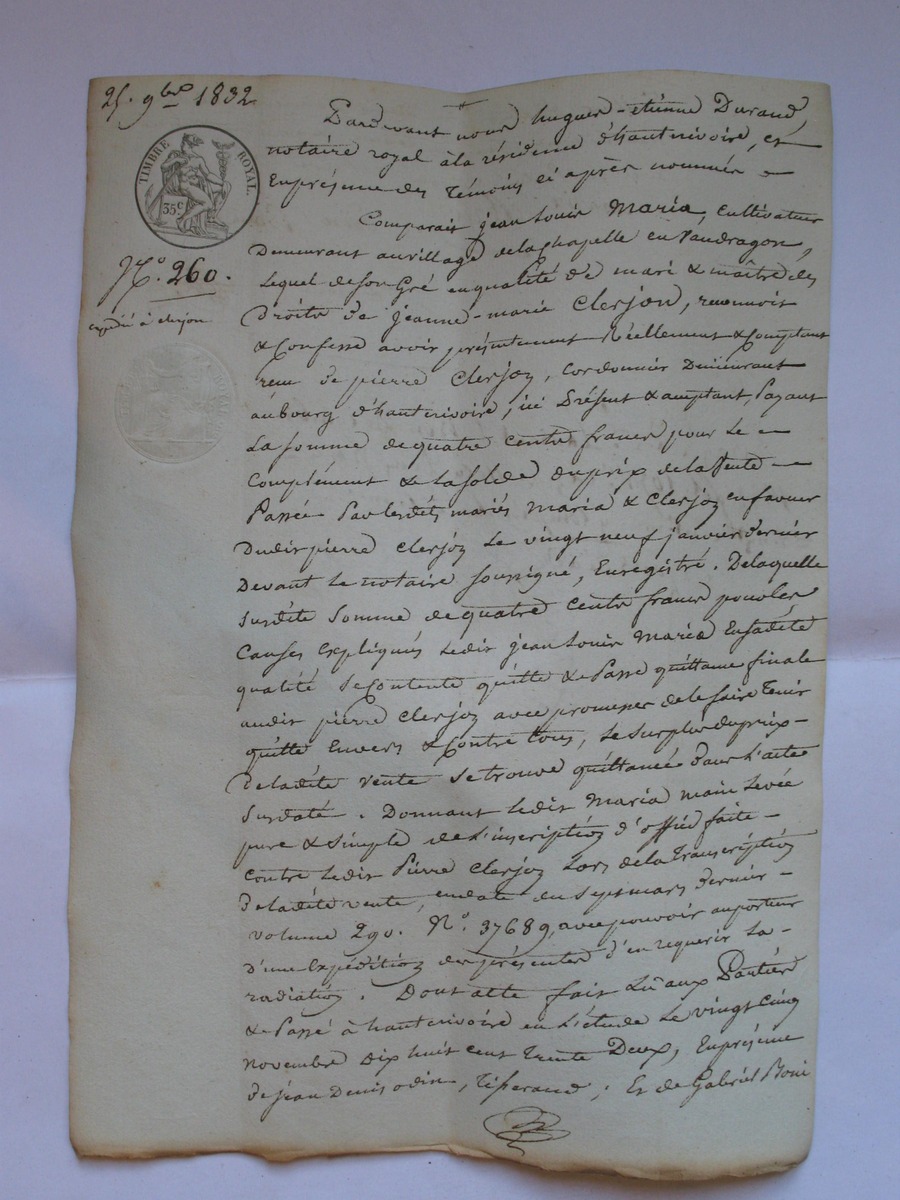 25. 9bre 1832
TIMBRE ROYAL.
35c
No. 260.
expédié à clerjon
Pardevant nous hugues-etienne Durand,
notaire royal à la résidence d'hauterivoire, et
Enprésence des Témoins ci après nommés -
Comparait jean Louis Maria, Cultivateur
Demeurant au village de la chapelle en Vaudragon,
Lequel de son Gré en qualité de mari & maître des
Droits de jeanne-marie Clerjon, reconnoit
& Confesse avoir présentement Réellement & Comptant
recu de pierre Clerjon, Cordonnier Demeurant
au bourg d'hauterivoire, ici Présent & acceptant, Payant
La somme de quatre cents francs pour le -
Complément & la solde du prix de la Vente -
Passée Par lesdits mariés Maria & Clerjon en faveur
Dudit pierre Clerjon le vingt neuf janvier dernier
Devant le notaire soussigné, Enregistré. De laquelle
susdite somme de quatre cents francs pour les
Causes expliqués ledit jean Louis Maria En sadite
qualité se Contente quitte & Passe quittance finale
audit pierre Clerjon avec promesses de le faire tenir
quitte Envers & Contre tous, le surplus du prix -
De ladite vente se trouve quittancé dans L'acte
susdaté. Donnant ledit Maria main Levée
pure & simple de L'inscription d'office faite -
Contre ledit Pierre Clerjon Lors de la Transcription
De ladite vente, en date du sept mars dernier -
volume 290. No. 37689, avec pouvoir au porteur
d'une Expédition des présentes d'en requerir la -
radiation. Dont acte fait Lu aux Parties
& Passé à hauterivoire en L'étude le vingt cinq
novembre Dix huit cent Trente Deux, En présence
De jean Denis odin, Tisserand; Et de Gabriel Boni